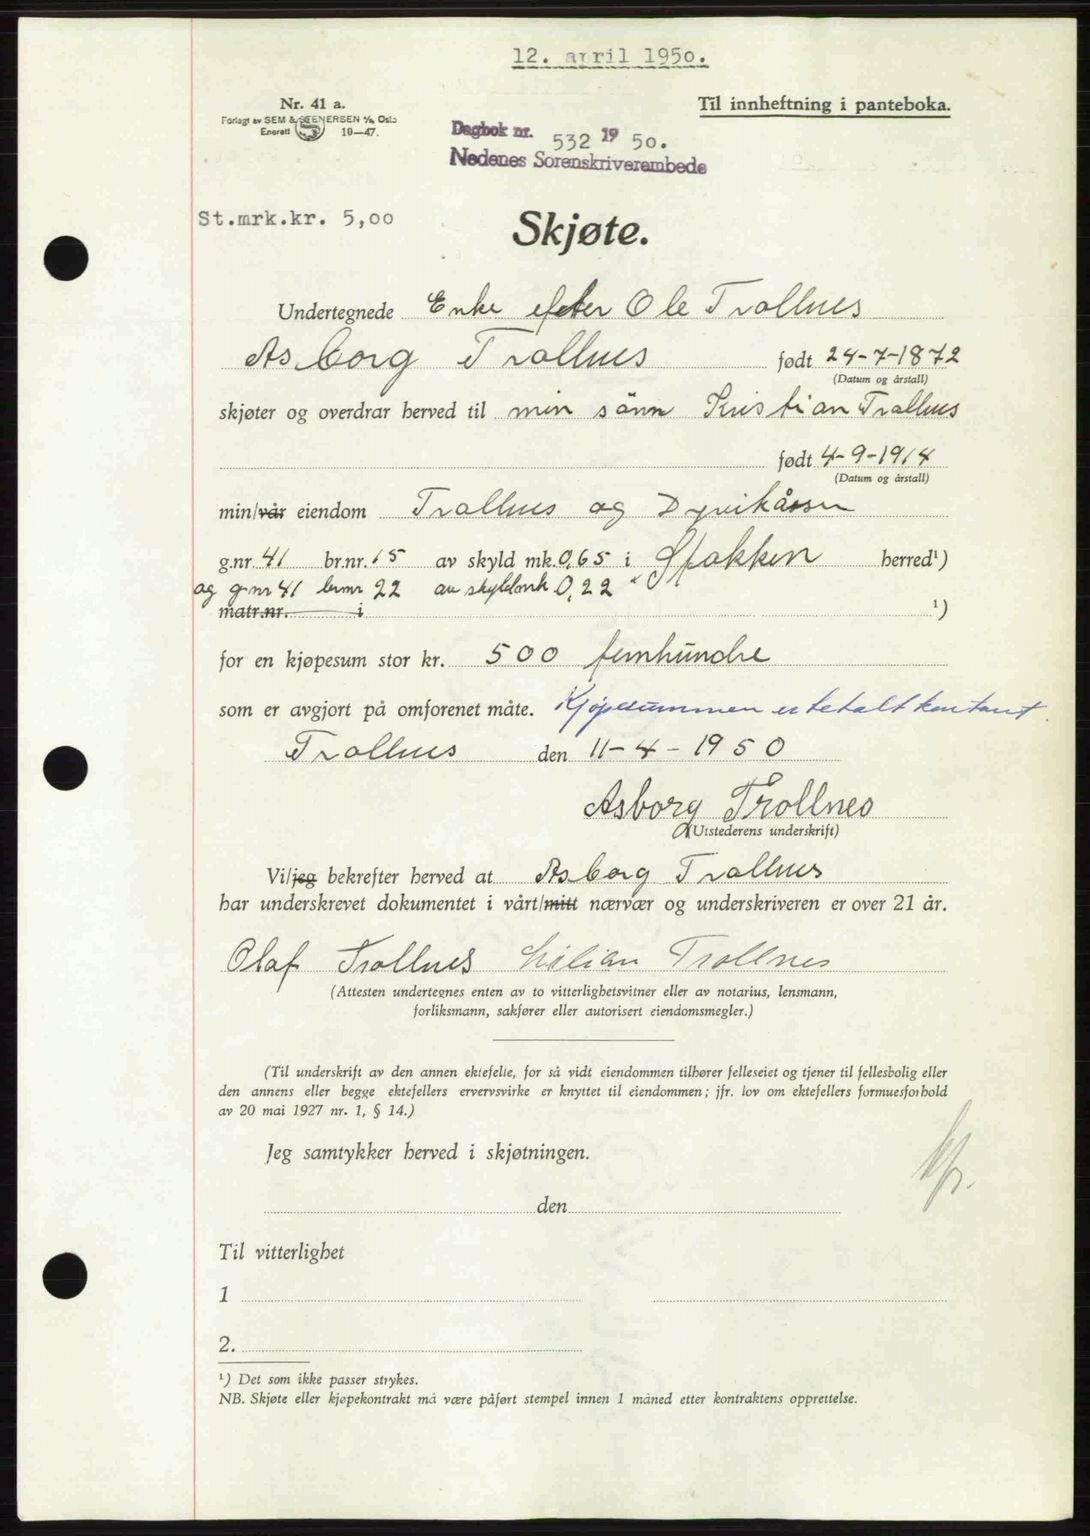 12. april 1950.
Nr. 41 a.
Til innheftning i panteboka.
Forlagt av SEM & STENERSEN A/s, Oslo
Enerett S 10—47.
Dagbok nr. 532 19 50.
Nedenes Sorenskriverembede
St.mrk.kr. 5,00
Skjøte.
Undertegnede Enke efter Ole Trollnes
Asborg Trollnes født 24-7-1872
(Datum og årstall)
skjøter og overdrar herved til min sønn Kristian Trollnes
født 4-9-1914
(Datum og årstall)
min/vår eiendom Trollnes og Dyvikåsen
g.nr. 41 br.nr. 15 av skyld mk. 0,65 i Stokken herred¹)
og gnr 41 brnr 22 av skyldmk 0,22 "
matr.nr. i ¹)
for en kjøpesum stor kr. 500 femhundre
som er avgjort på omforenet måte. Kjøpesummen er betalt kontant.
Trollnes den 11-4-1950
Asborg Trollnes
(Utstederens underskrift)
Vi/jeg bekrefter herved at Asborg Trollnes
har underskrevet dokumentet i vårt/mitt nærvær og underskriveren er over 21 år.
Olaf Trollnes Lilian Trollnes
(Attesten undertegnes enten av to vitterlighetsvitner eller av notarius, lensmann,
forliksmann, sakfører eller autorisert eiendomsmegler.)
(Til underskrift av den annen ektefelle, for så vidt eiendommen tilhører felleseiet og tjener til fellesbolig eller
den annens eller begge ektefellers ervervsvirke er knyttet til eiendommen; jfr. lov om ektefellers formuesforhold
av 20 mai 1927 nr. 1, § 14.)
Jeg samtykker herved i skjøtningen.
den
Til vitterlighet
1
2.
¹) Det som ikke passer strykes.
NB. Skjøte eller kjøpekontrakt må være påført stempel innen 1 måned etter kontraktens opprettelse.